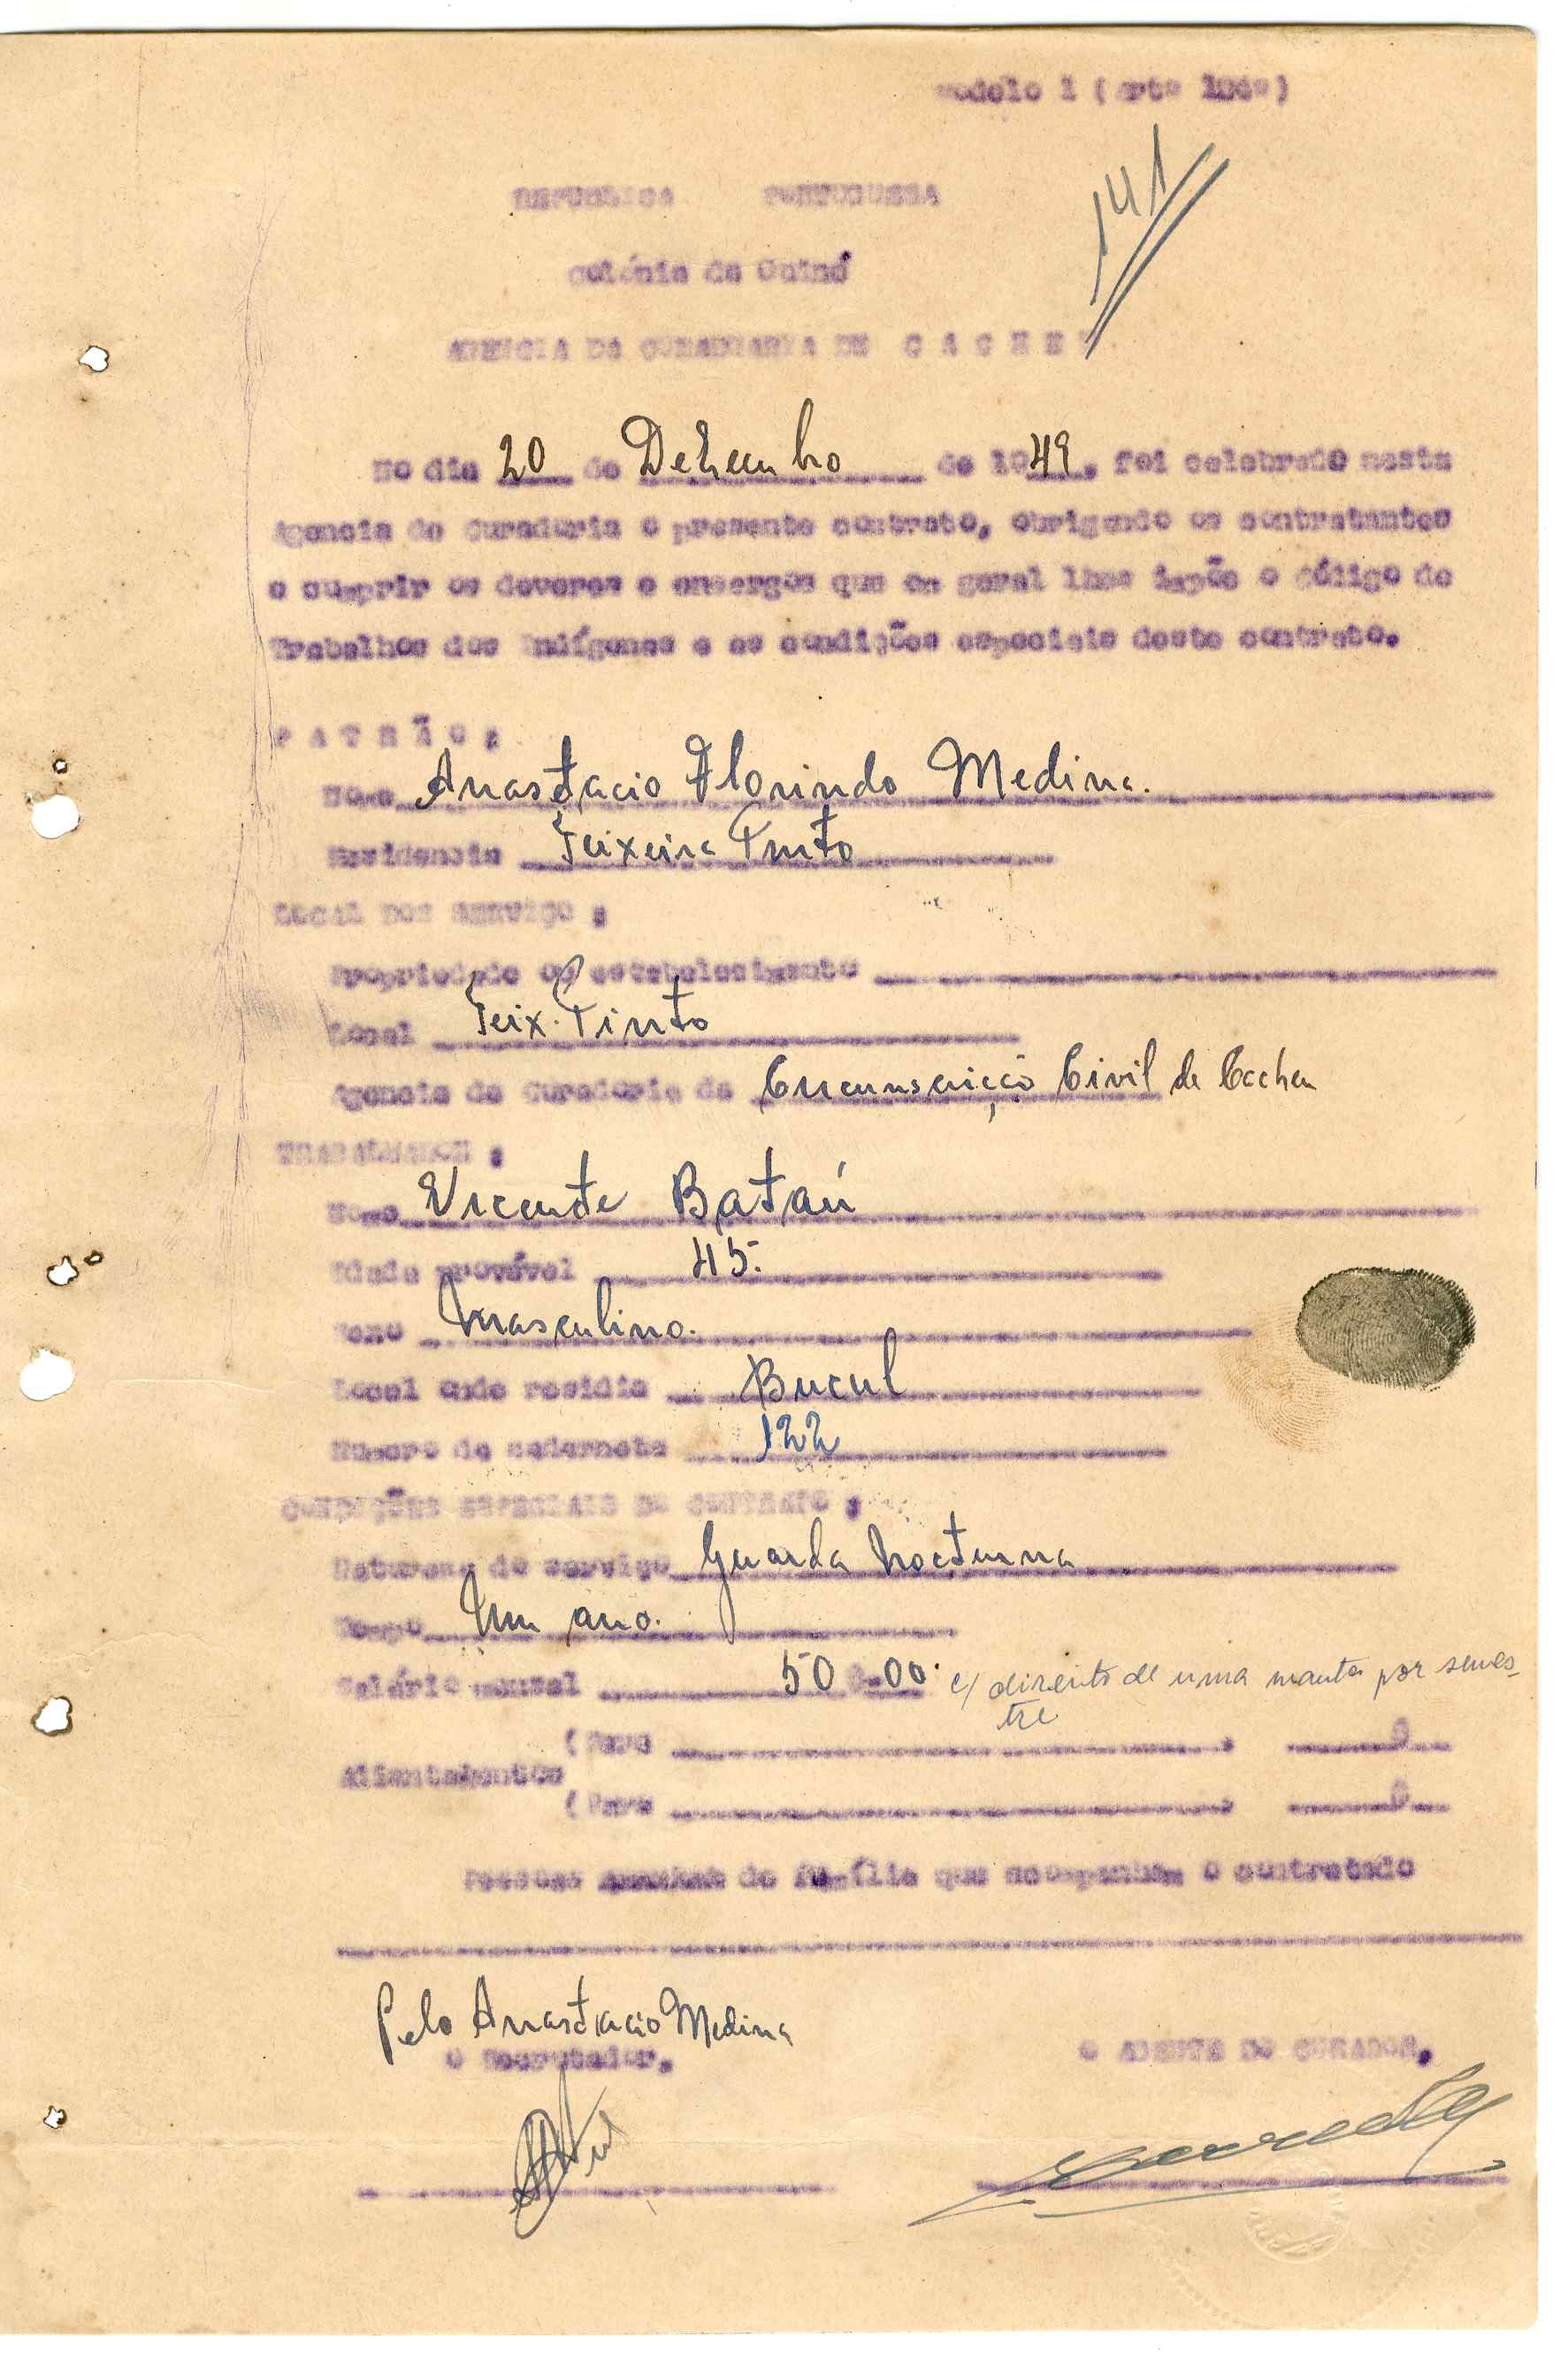 Modelo 1 (Artº
141
REPUBLICA PORTUGUESA
Colónia da Guiné
AGENCIA DA CURADORIA DE CACHEU
No dia 20 de Dezembro de 1949, foi celebrado nesta
Agencia de Curadoria o presente contrato, obrigando os contratantes
a cumprir os deveres e encargos que em geral lhes impõe o Código do
Trabalhos dos Indígenas e as condições especiais deste contrato.
PATRÃO:
Nome Anastacio Florindo Medina.
Residencia Teixeira Pinto
LOCAL DOS SERVIÇO:
Propriedade ou estabelecimento
Local Teix. Pinto
Agencia da Curadoria da Circunscrição Civil de Cacheu
TRABALHADOR:
Nome Vicente Bataú
Idade provável 45.
Sexo Masculino.
Local onde residia Bucul
Número da caderneta 122
CONDIÇÕES ESPECIAIS DO CONTRATO:
Natureza do serviço Guarda Nocturna
Tempo Um ano.
Salário mensal 50$00 c/ direito de uma manta por semes-
tre
(Para , $
Alimentamentos
(Para , $
Pessoas de família que acompanham o contratado
Pelo Anastacio Medina
O Recrutador,
O AGENTE DO CURADOR,